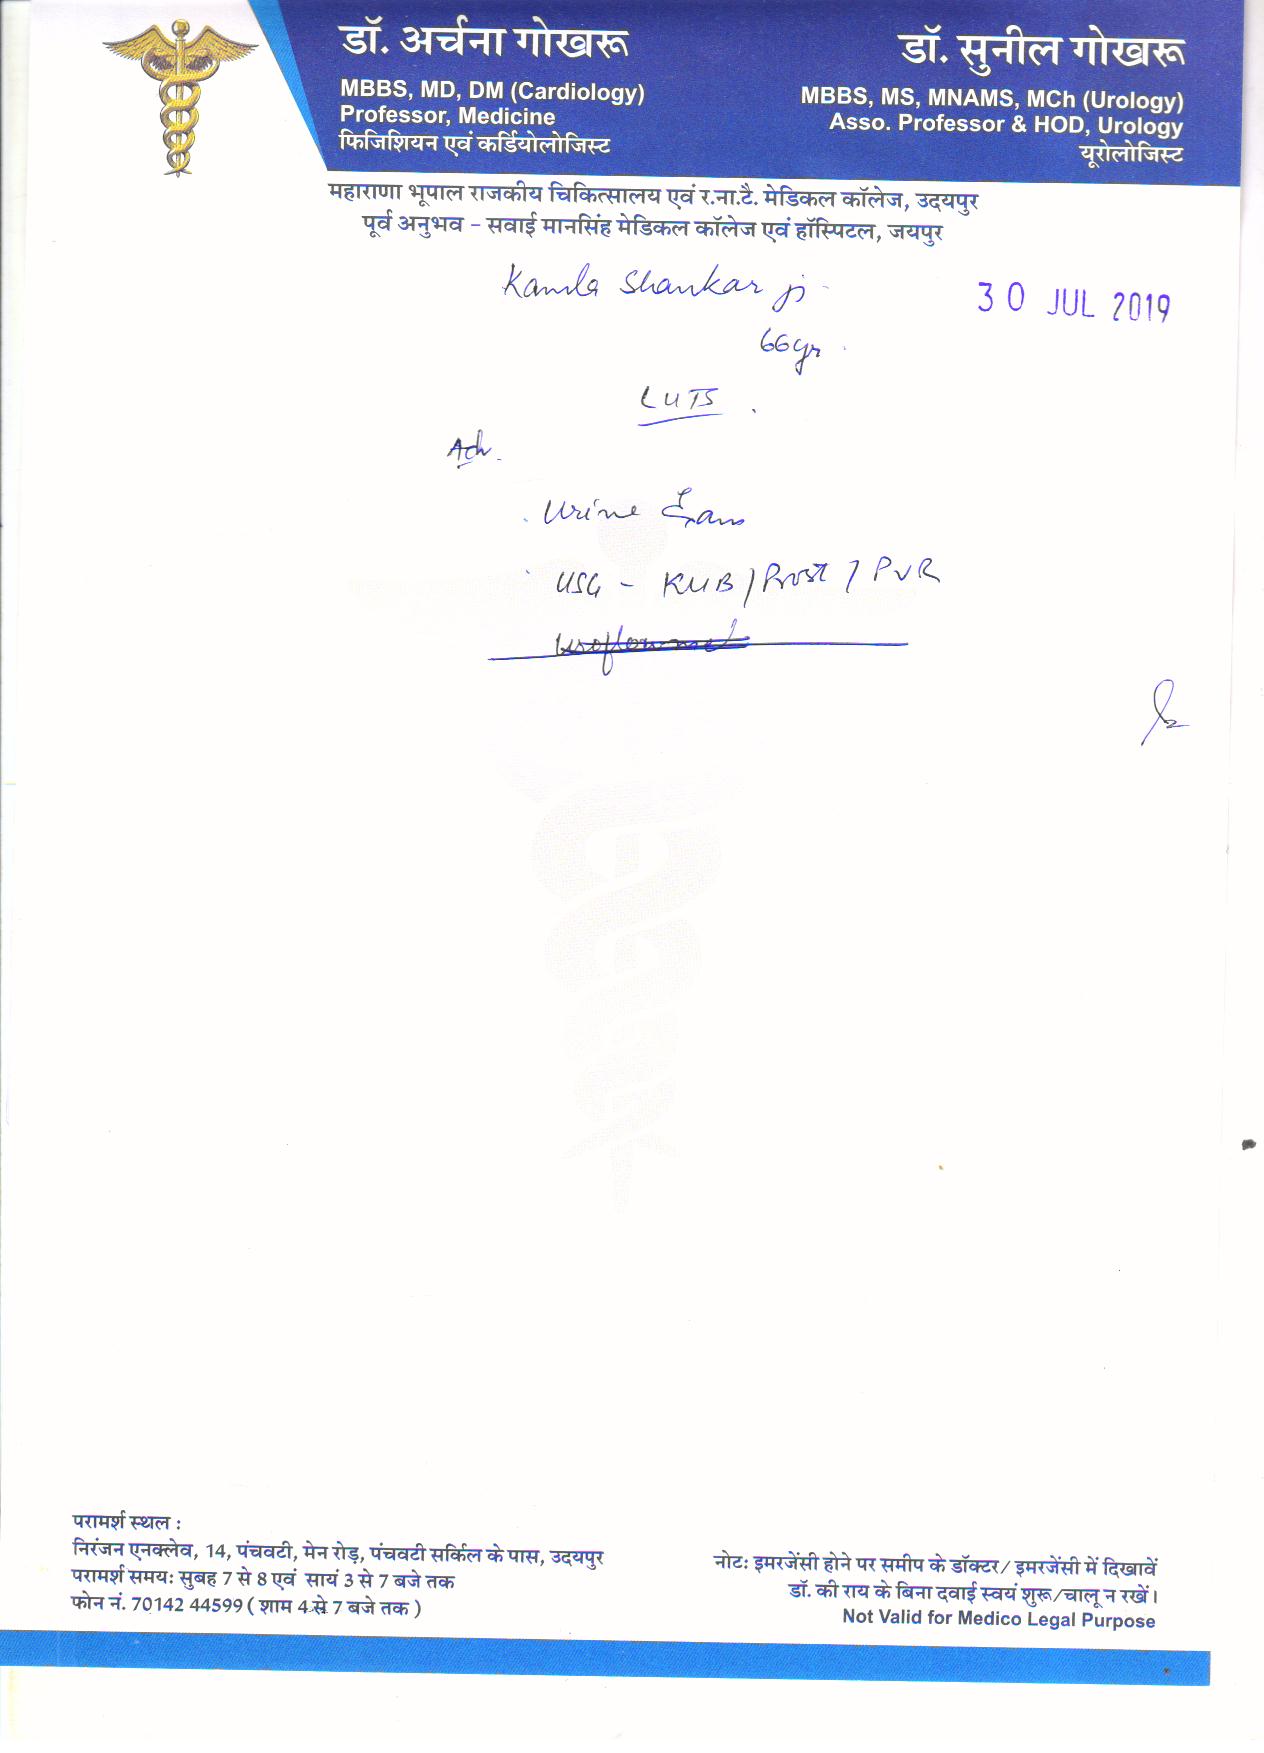 डॉ. अर्चना गोखरू
MBBS, MD, DM (Cardiology)
Professor, Medicine
फिजिशियन एवं कर्डियोलोजिस्ट
डॉ. सुनील गोखरू
MBBS, MS, MNAMS, MCh (Urology)
Asso. Professor & HOD, Urology
यूरोलोजिस्ट
महाराणा भूपाल राजकीय चिकित्सालय एवं र.ना.टै. मेडिकल कॉलेज, उदयपुर
पूर्व अनुभव - सवाई मानसिंह मेडिकल कॉलेज एवं हॉस्पिटल, जयपुर
Kamla Shankar ji
30 JUL 2019
66 yr
LUTS
Adv.
Urine Exam
USG - KUB / Prost / PVR
परामर्श स्थल :
निरंजन एनक्लेव, 14, पंचवटी, मेन रोड़, पंचवटी सर्किल के पास, उदयपुर
परामर्श समय: सुबह 7 से 8 एवं सायं 3 से 7 बजे तक
फोन नं. 70142 44599 ( शाम 4 से 7 बजे तक )
नोट: इमरजेंसी होने पर समीप के डॉक्टर/ इमरजेंसी में दिखावें
डॉ. की राय के बिना दवाई स्वयं शुरू/चालू न रखें।
Not Valid for Medico Legal Purpose